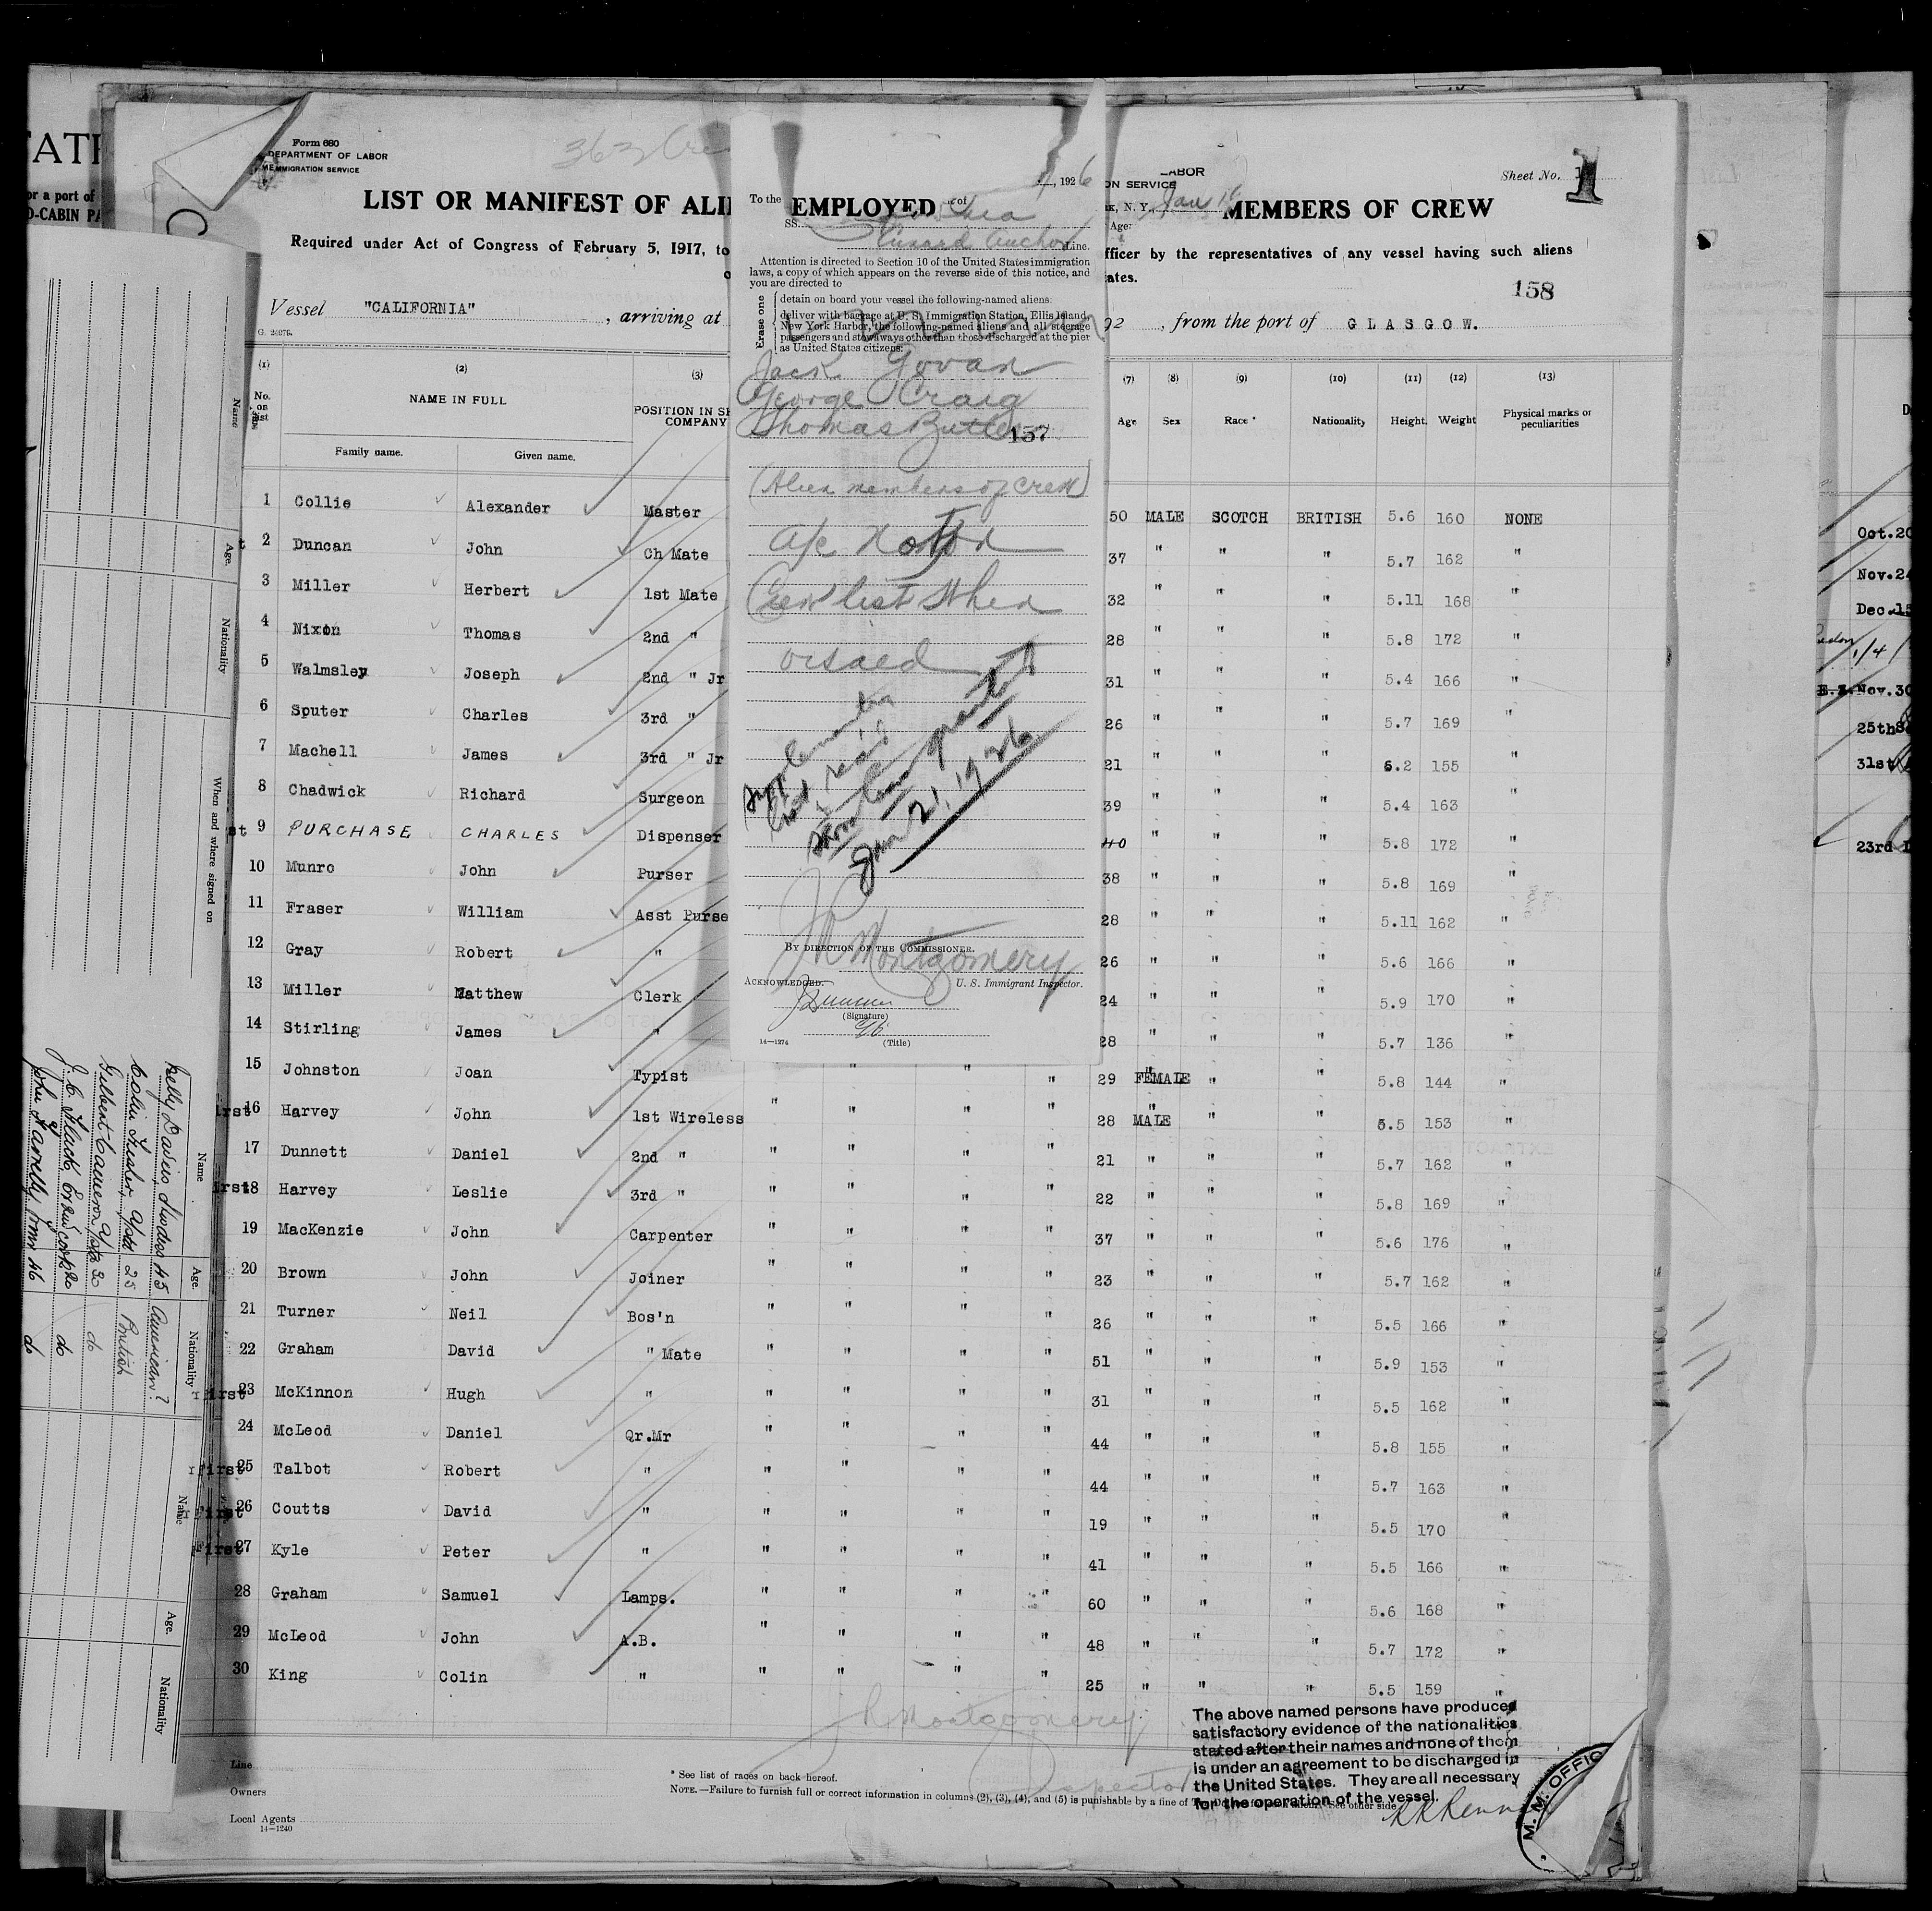 Form 680
DEPARTMENT OF LABOR
IMMIGRATION SERVICE
LIST OR MANIFEST OF ALI
EMPLOYED
MEMBERS OF CREW
Sheet No. 1
1
Required under Act of Congress of February 5, 1917, to
fficer by the representatives of any vessel having such aliens
ates.
158
Vessel "CALIFORNIA", arriving at
92 , from the port of GLASGOW.
(1) (2) (3) (7) (8) (9) (10) (11) (12) (13)
No. on list NAME IN FULL POSITION IN SH COMPANY Age Sex Race * Nationality Height Weight Physical marks or peculiarities
Family name. Given name.
1 Collie Alexander Master 50 MALE SCOTCH BRITISH 5.6 160 NONE
2 Duncan John Ch Mate 37 " " " 5.7 162 "
3 Miller Herbert 1st Mate 32 " " " 5.11 168 "
4 Nixon Thomas 2nd " 28 " " " 5.8 172 "
5 Walmsley Joseph 2nd " Jr 31 " " " 5.4 166 "
6 Sputer Charles 3rd " 26 " " " 5.7 169 "
7 Machell James 3rd " Jr 21 " " " 6.2 155 "
8 Chadwick Richard Surgeon 39 " " " 5.4 163 "
9 PURCHASE CHARLES Dispenser 40 " " " 5.8 172 "
10 Munro John Purser 38 " " " 5.8 169 "
11 Fraser William Asst Purse 28 " " " 5.11 162 "
12 Gray Robert " 26 " " " 5.6 166 "
13 Miller Matthew Clerk 24 " " " 5.9 170 "
14 Stirling James " 28 " " " 5.7 136 "
15 Johnston Joan Typist " " " 29 FEMALE " " 5.8 144 "
16 Harvey John 1st Wireless " " " " 28 MALE " " 5.5 153 "
17 Dunnett Daniel 2nd " " " " " 21 " " " 5.7 162 "
18 Harvey Leslie 3rd " " " " " 22 " " " 5.8 169 "
19 MacKenzie John Carpenter " " " " 37 " " " 5.6 176 "
20 Brown John Joiner " " " " 23 " " " 5.7 162 "
21 Turner Neil Bos'n " " " " 26 " " " 5.5 166 "
22 Graham David " Mate " " " " 51 " " " 5.9 153 "
23 McKinnon Hugh " " " " " 31 " " " 5.5 162 "
24 McLeod Daniel Qr.Mr " " " " 44 " " " 5.8 155 "
25 Talbot Robert " " " " " 44 " " " 5.7 163 "
26 Coutts David " " " " " 19 " " " 5.5 170 "
27 Kyle Peter " " " " " 41 " " " 5.5 166 "
28 Graham Samuel Lamps. " " " " 60 " " " 5.6 168 "
29 McLeod John A.B. " " " " 48 " " " 5.7 172 "
30 King Colin " " " " " 25 " " " 5.5 159 "
The above named persons have produced
satisfactory evidence of the nationalities
stated after their names and none of them
is under an agreement to be discharged in
the United States. They are all necessary
for the operation of the vessel.
J R Montgomery
Inspector
Line
Owners
Local Agents
14—1240
* See list of races on back hereof.
NOTE.—Failure to furnish full or correct information in columns (2), (3), (4), and (5) is punishable by a fine of
See other side
M. M. OFFIC
, 1926
To the
SS.
Cunard Anchor Line.
Attention is directed to Section 10 of the United States immigration
laws, a copy of which appears on the reverse side of this notice, and
you are directed to
Erase one
detain on board your vessel the following-named aliens:
deliver with baggage at U. S. Immigration Station, Ellis Island,
New York Harbor, the following-named aliens and all steerage
passengers and stowaways other than those discharged at the pier
as United States citizens:
Jack Govan
George Craig
Thomas Butler
157
(Alien members of crew)
a/c not on
Crew list when
visaed
Supplementary
list rec'd
Shore leave granted
Jan 21, 1926
J R Montgomery
BY DIRECTION OF THE COMMISSIONER.
U. S. Immigrant Inspector.
ACKNOWLEDGED:
(Signature)
(Title)
14—1274
LABOR
ON SERVICE
Name
Age.
Nationality
When and where signed on
Name
Age.
Nationality
Name
Age.
Nationality
45 American?
25 British
do
do
46 do
Oct.20
Nov.24
Dec.15
1/4/
Nov.30
25th
31st
23rd